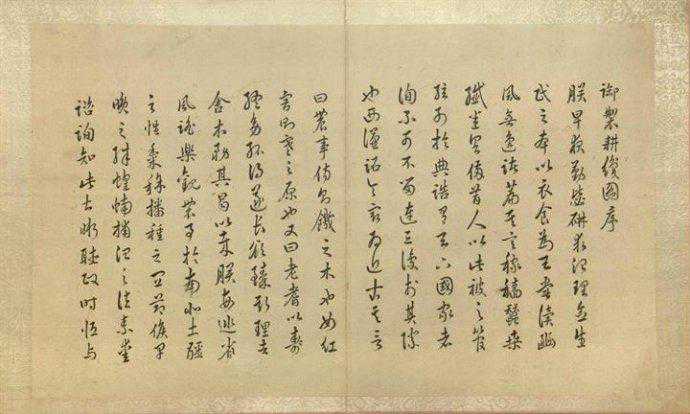 御製耕織圖序
朕早夜勤毖研求治理念生
民之本以衣食為天嘗讀豳
風無逸諸篇其言稼穡蠶桑
纖悉具備昔人以此被之管
絃列於典誥有天下國家者
洵不可不留連三復於其際
也西漢詔令最為近古其言
曰農事傷則饑之本也女紅
害則寒之原也又曰老耆以壽
終幼孤得遂長欲臻斯理者
舍本務其曷以哉朕每巡省
風謠樂觀農事於南北土疆
之性黍稌播種之宜節候早
晚之殊蝗蝻捕治之法素愛
諮詢知此甚晰聽政時恒與